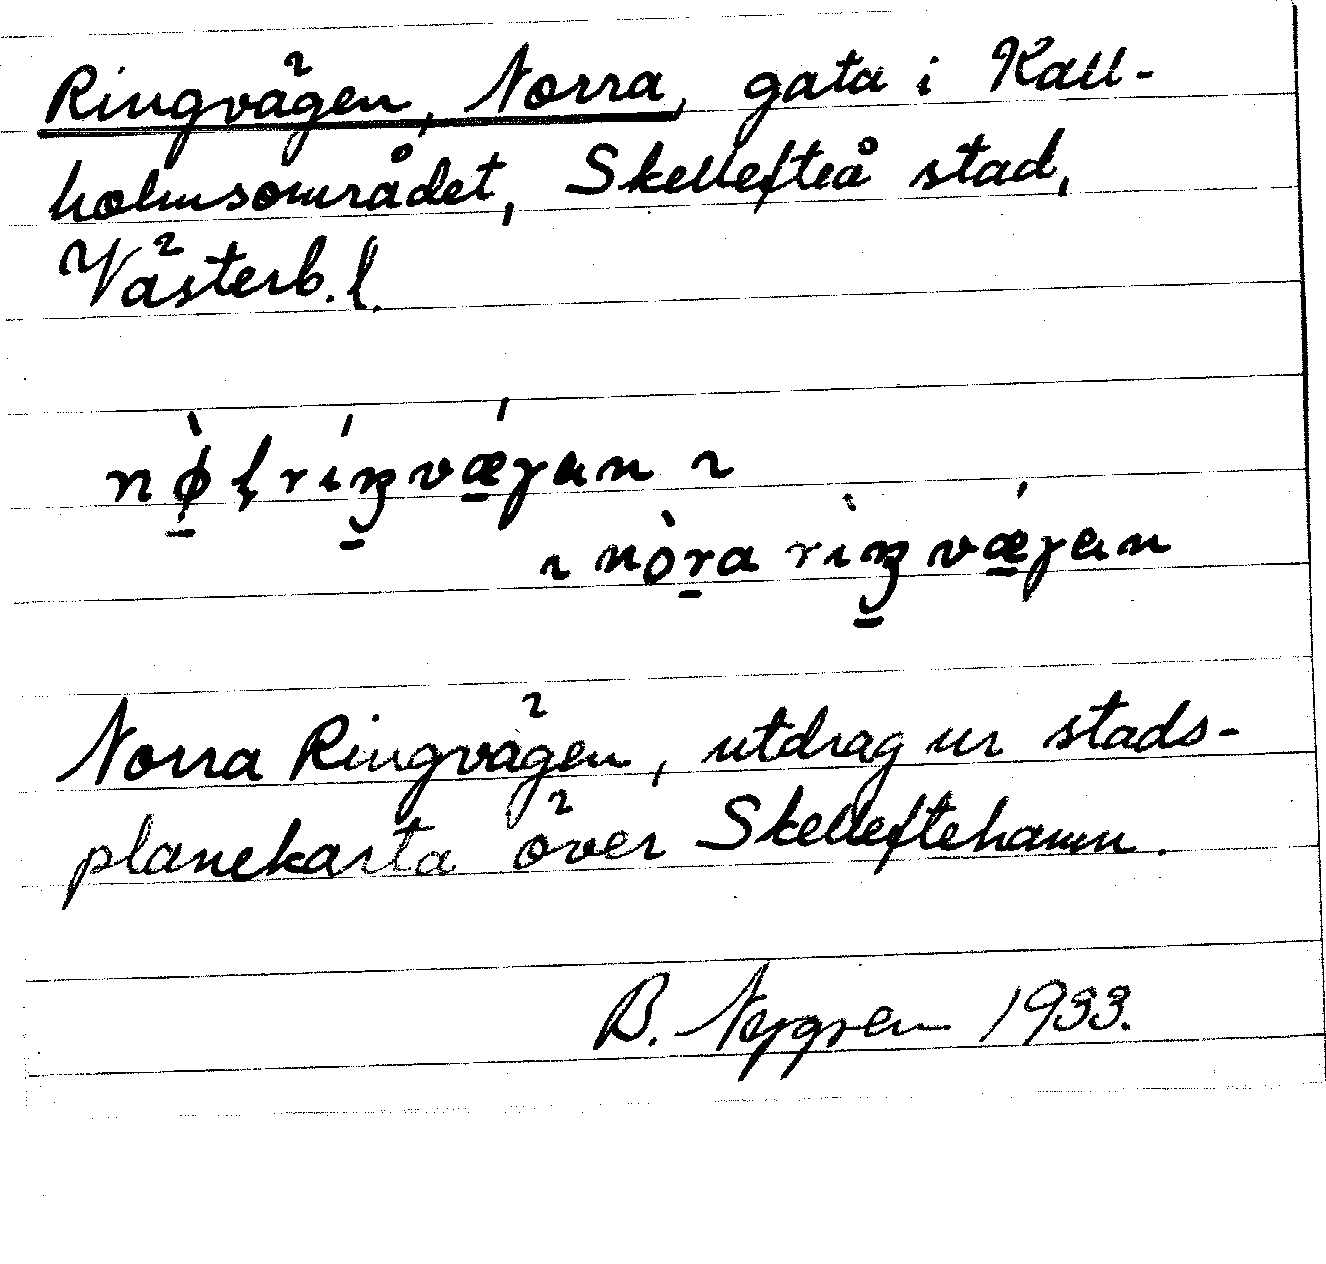 Ringvägen, Norra, gata i Kall-
holmsområdet, Skellefteå stad,
Västerb. l.
Norra Ringvägen, utdrag ur stads-
planekarta över Skelleftehamn.
B. Nygren 1933.